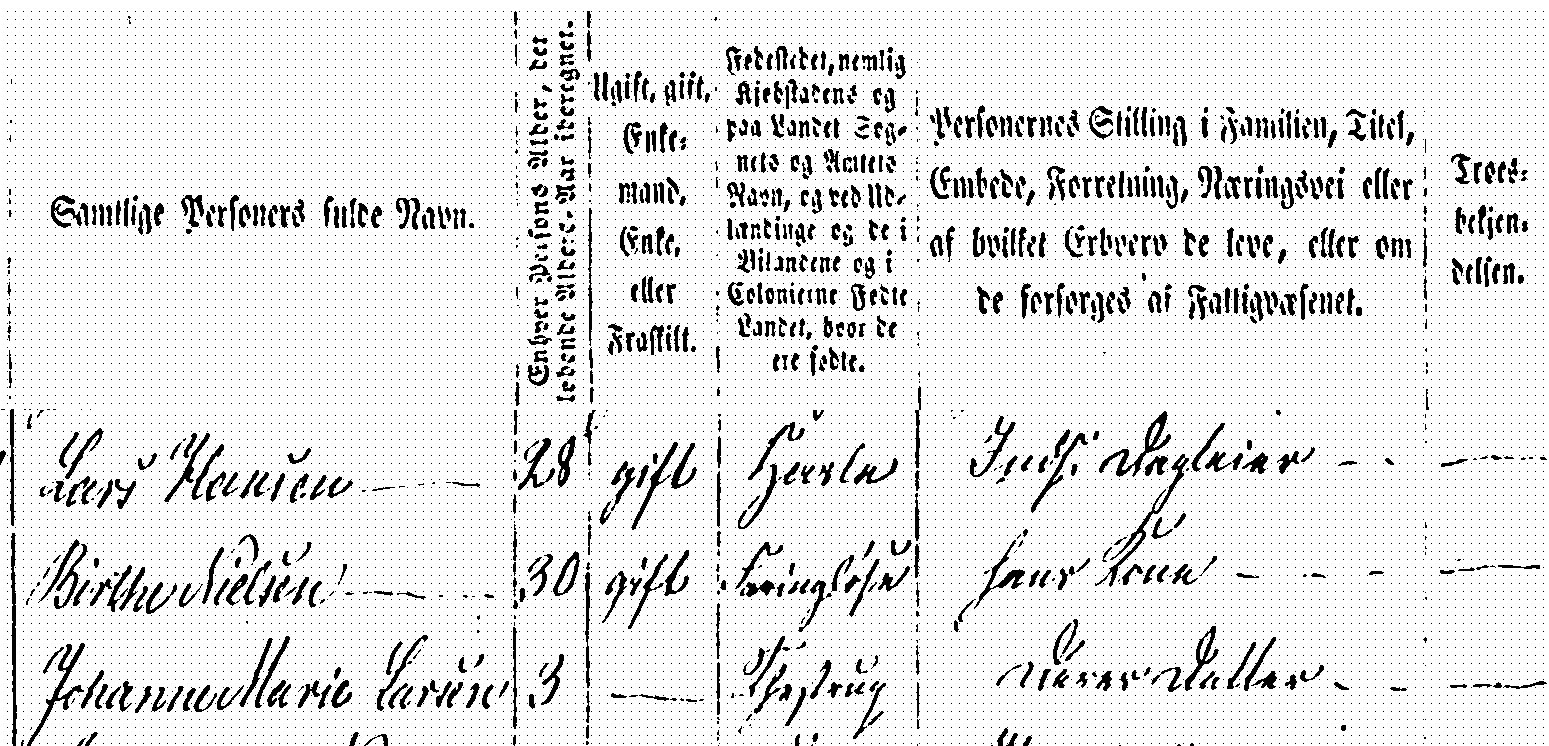 Samtlige Personers fulde Navn.
Enhver Persons Alder, det
løbende Alders-Aar iberegnet.
Ugift, gift,
Enke-
mand,
Enke,
eller
Fraskilt.
Fødestedet, nemlig
Kjøbstadens og
paa Landet Sog-
nets og Amtets
Navn, og ved Ud-
lændinge og de i
Bilandene og i
Colonierne Fødte
Landet, hvor de
ere fødte.
Personernes Stilling i Familien, Titel,
Embede, Forretning, Næringsvei eller
af hvilket Erhverv de leve, eller om
de forsørges af Fattigvæsenet.
Troes-
bekjen-
delsen.
Lars Hansen — 28 gift Inds. Dagleier - - —
Birthe Nielsen — 30 gift Faringløse hans Kone - - - —
Johanne Marie Larsen 3 — Thestrup Deres Datter - - —